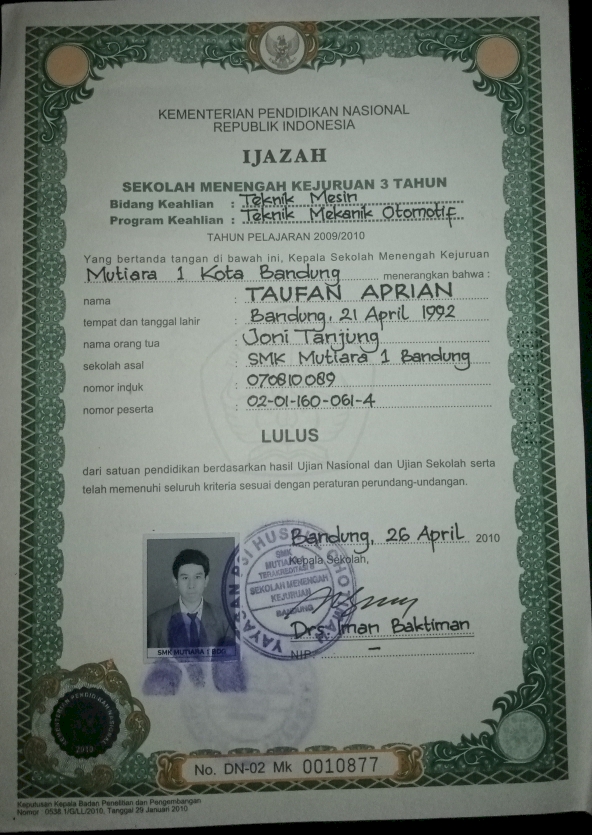 KEMENTERIAN PENDIDIKAN NASIONAL
REPUBLIK INDONESIA
IJAZAH
SEKOLAH MENENGAH KEJURUAN 3 TAHUN
Bidang Keahlian : Teknik Mesin
Program Keahlian : Teknik Mekanik Otomotif
TAHUN PELAJARAN 2009/2010
Yang bertanda tangan di bawah ini, Kepala Sekolah Menengah Kejuruan
Mutiara 1 Kota Bandung menerangkan bahwa :
nama : TAUFAN APRIAN
tempat dan tanggal lahir : Bandung, 21 April 1992
nama orang tua : Joni Tanjung
sekolah asal : SMK Mutiara 1 Bandung
nomor induk : 070810089
nomor peserta : 02-01-160-061-4
LULUS
dari satuan pendidikan berdasarkan hasil Ujian Nasional dan Ujian Sekolah serta
telah memenuhi seluruh kriteria sesuai dengan peraturan perundang-undangan.
Bandung, 26 April 2010
Kepala Sekolah,
SMK
MUTIARA
SEKOLAH MENENGAH
KEJURUAN
BANDUNG
YAYASAN
Drs. Iman Baktiman
NIP. -
SMK MUTIARA 1 BDG
KEMENTERIAN PENDIDIKAN NASIONAL
2010
No. DN-02 Mk 0010877
Keputusan Kepala Badan Penelitian dan Pengembangan
Nomor : 0638.1/G/LL/2010, Tanggal 29 Januari 2010